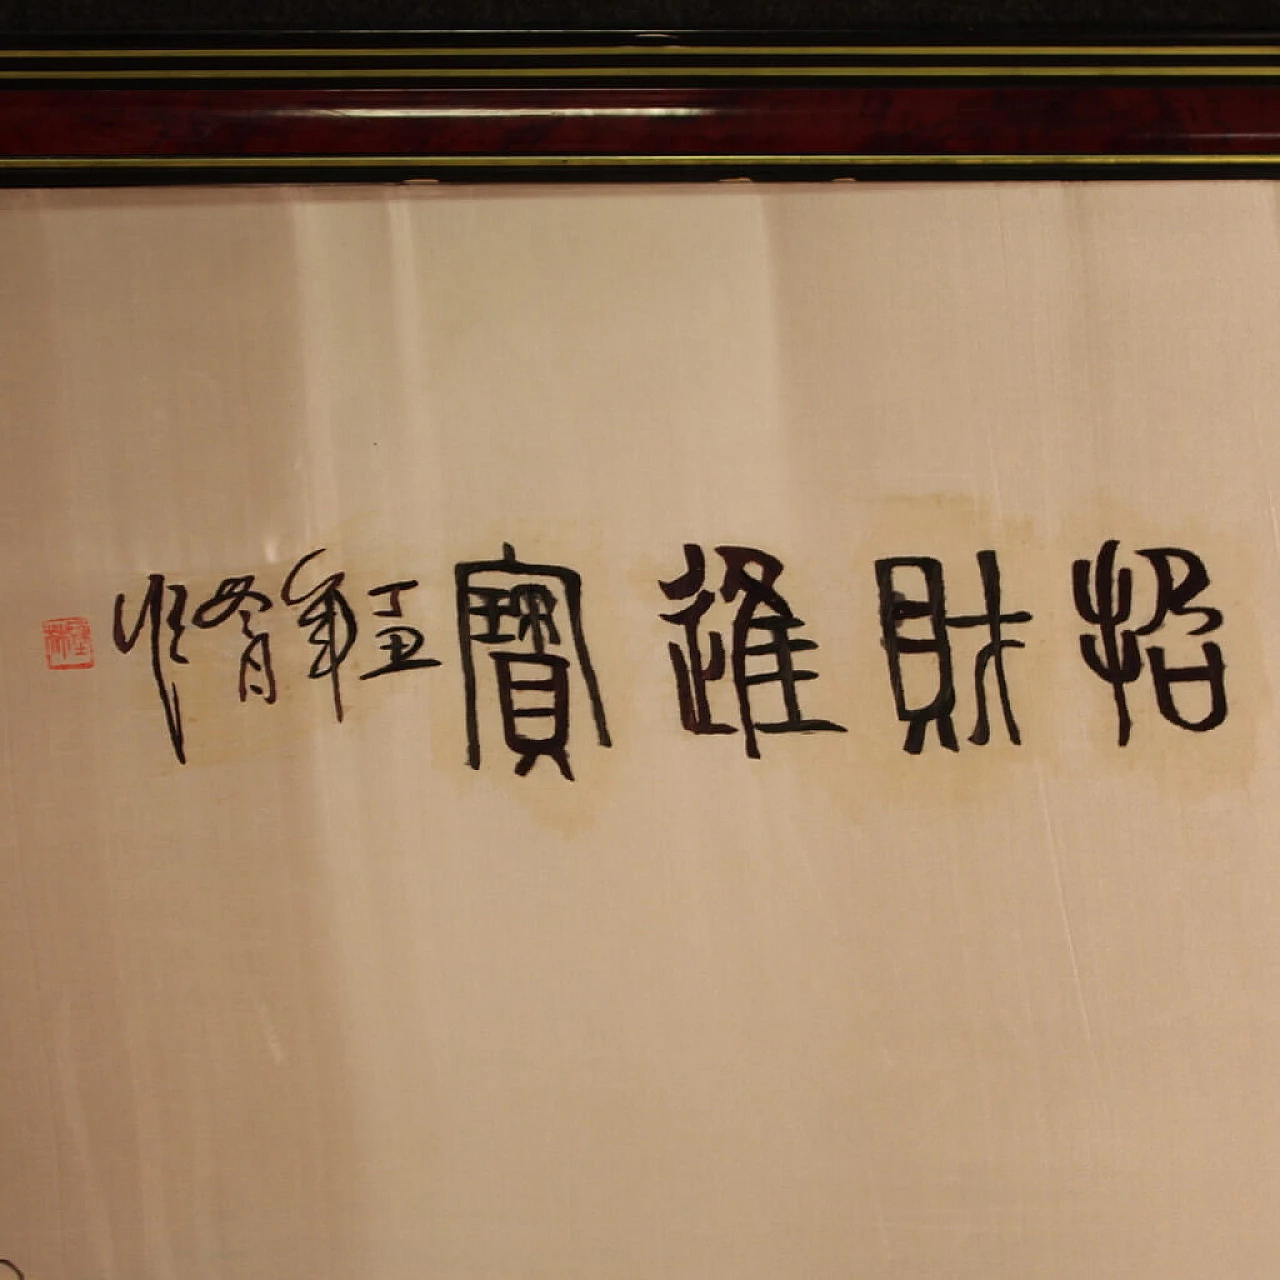 招財進寶
丁丑年
冬月